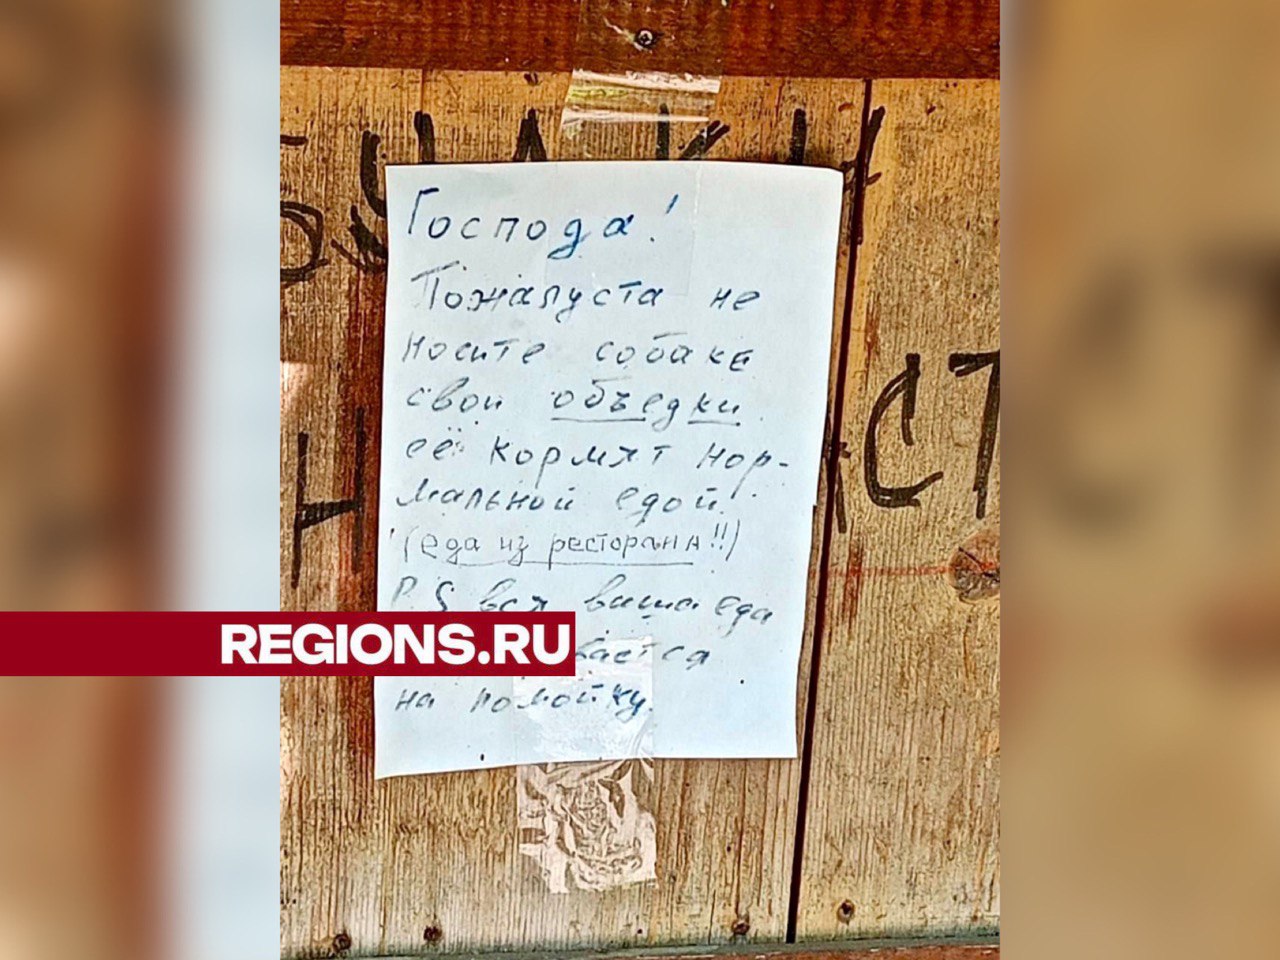 Господа!
Пожалуста не
носите собаке
свои объедки.
её кормят нор-
мальной едой.
(еда из ресторана!!)
P.S вся ваша еда
REGIONS.RU
на помойку.